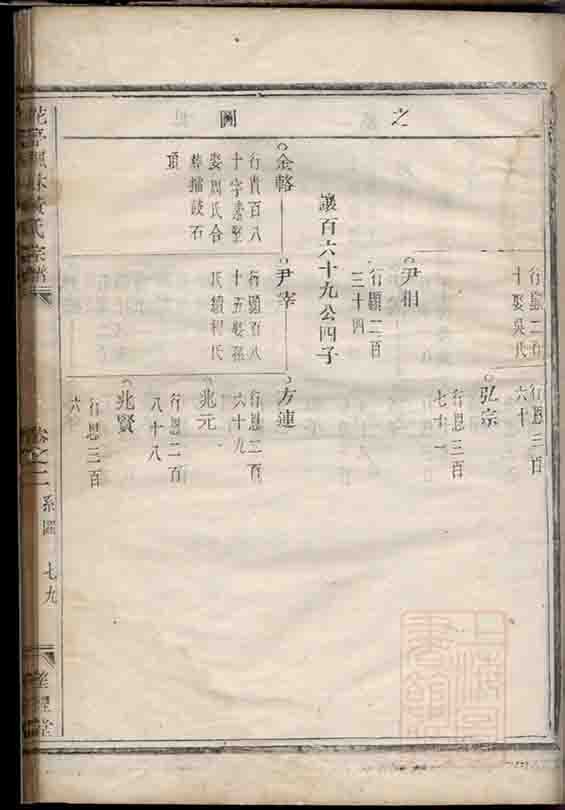 之
圖
行顯二百
十娶吳氏
行恩三百
六十
弘宗
行恩三百
七十一
尹相
行顯二百
三十四
讓百六十九公四子
金輅
行貴百八
十字素堅
娶周氏合
葬擂鼓石
頂
尹宰
行顯百八
十五娶孫
氏續柯氏
方連
行恩二百
六十九
兆元
行恩二百
八十八
兆賢
行恩三百
卷之二
系圖
七九